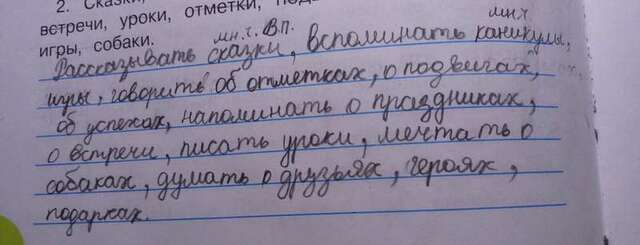 2. Сказки,
встречи, уроки, отметки,
игры, собаки.
мн.ч. В.п.
мн.ч.
Рассказывать сказки, вспоминать каникулы,
игры, говорить об отметках, о подвигах,
об успехах, напоминать о праздниках,
о встречи, писать уроки, мечтать о
собаках, думать о друзьях, героях,
подарках.